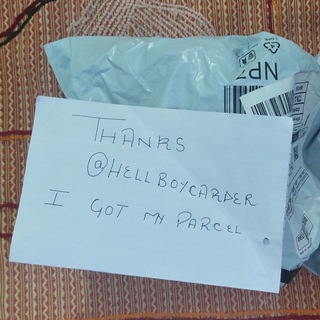 NPZ
THANKS
@HELLBOYCARDER
I GOT MY PARCEL